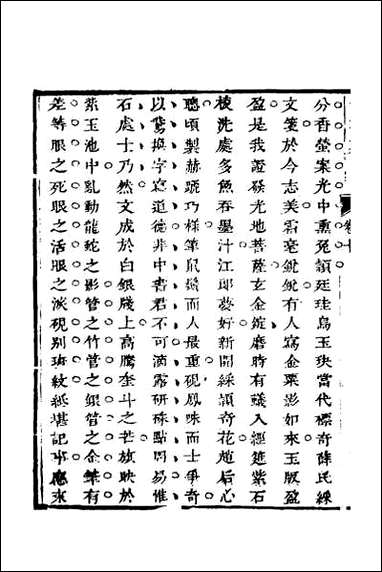 分香螢案光中熏兔頴廷珪烏玉玦當代標奇薛民綵
文箋於今志美霜毫銳銳有人寫金粟影如來玉版盈
盈是我證發光地菩薩玄金錠磨時有蟻入經筵紫石
棱洗處多魚吞墨汁江郎夢好新開綵頴奇花趙后心
聰頃製赫蹏巧樣筆鼠鬚而人最重硯鳳咮而士爭奇
以鵞換字寫道德非中書君不可滴露研硃點周易惟
石處士乃然文成於白銀牋上高騰奎斗之芒放映於
紫玉池中亂動龍蛇之影管之竹管之銀管之金筆有
差等眼之死眼之活眼之淚硯別班紋紙堪記事應來